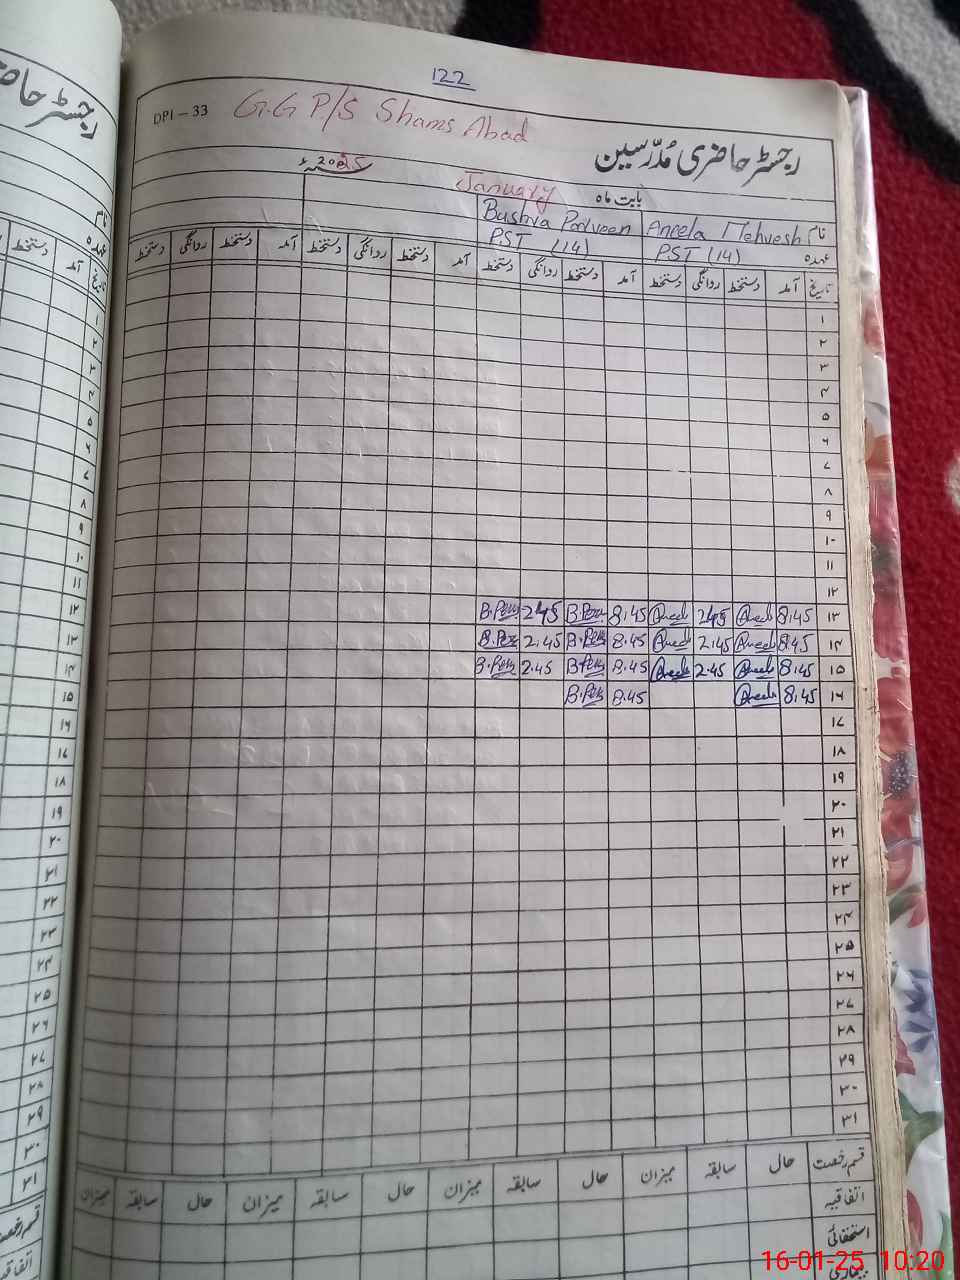 122
DPI – 33
G.G P/S Shams Abad
رجسٹر حاضری مُدرّسین
بابت ماہ January 2025ء
نام Aneela Mehvesh Bushra Parveen
عہدہ PST (14) PST (14)
تاریخ آمد دستخط روانگی دستخط آمد دستخط روانگی دستخط آمد دستخط روانگی دستخط آمد دستخط روانگی دستخط
۱
۲
۳
۴
۵
۶
۷
۸
۹
۱۰
۱۱
۱۲
۱۳ 8.45 Aneela 2.45 Aneela 8.45 B.Per 2.45 B.Per
۱۴ 8.45 Aneela 2.45 Aneela 8.45 B.Per 2.45 B.Per
۱۵ 8.45 Aneela 2.45 Aneela 8.45 B.Per 2.45 B.Per
۱۶ 8.45 Aneela 8.45 B.Per
۱۷
۱۸
۱۹
۲۰
۲۱
۲۲
۲۳
۲۴
۲۵
۲۶
۲۷
۲۸
۲۹
۳۰
۳۱
قسم رخصت حال سابقہ میزان حال سابقہ میزان حال سابقہ میزان حال سابقہ میزان
اتفاقیہ
استحقاقی
بیماری
رجسٹر حا
نام
عہدہ
تاریخ آمد دستخط
۱
۲
۳
۴
۵
۶
۷
۸
۹
۱۰
۱۱
۱۲
۱۳
۱۴
۱۵
۱۶
۱۷
۱۸
۱۹
۲۰
۲۱
۲۲
۲۳
۲۴
۲۵
۲۶
۲۷
۲۸
۲۹
۳۰
۳۱
قسم رخصت
اتفاقیہ
16-01-25 10:20